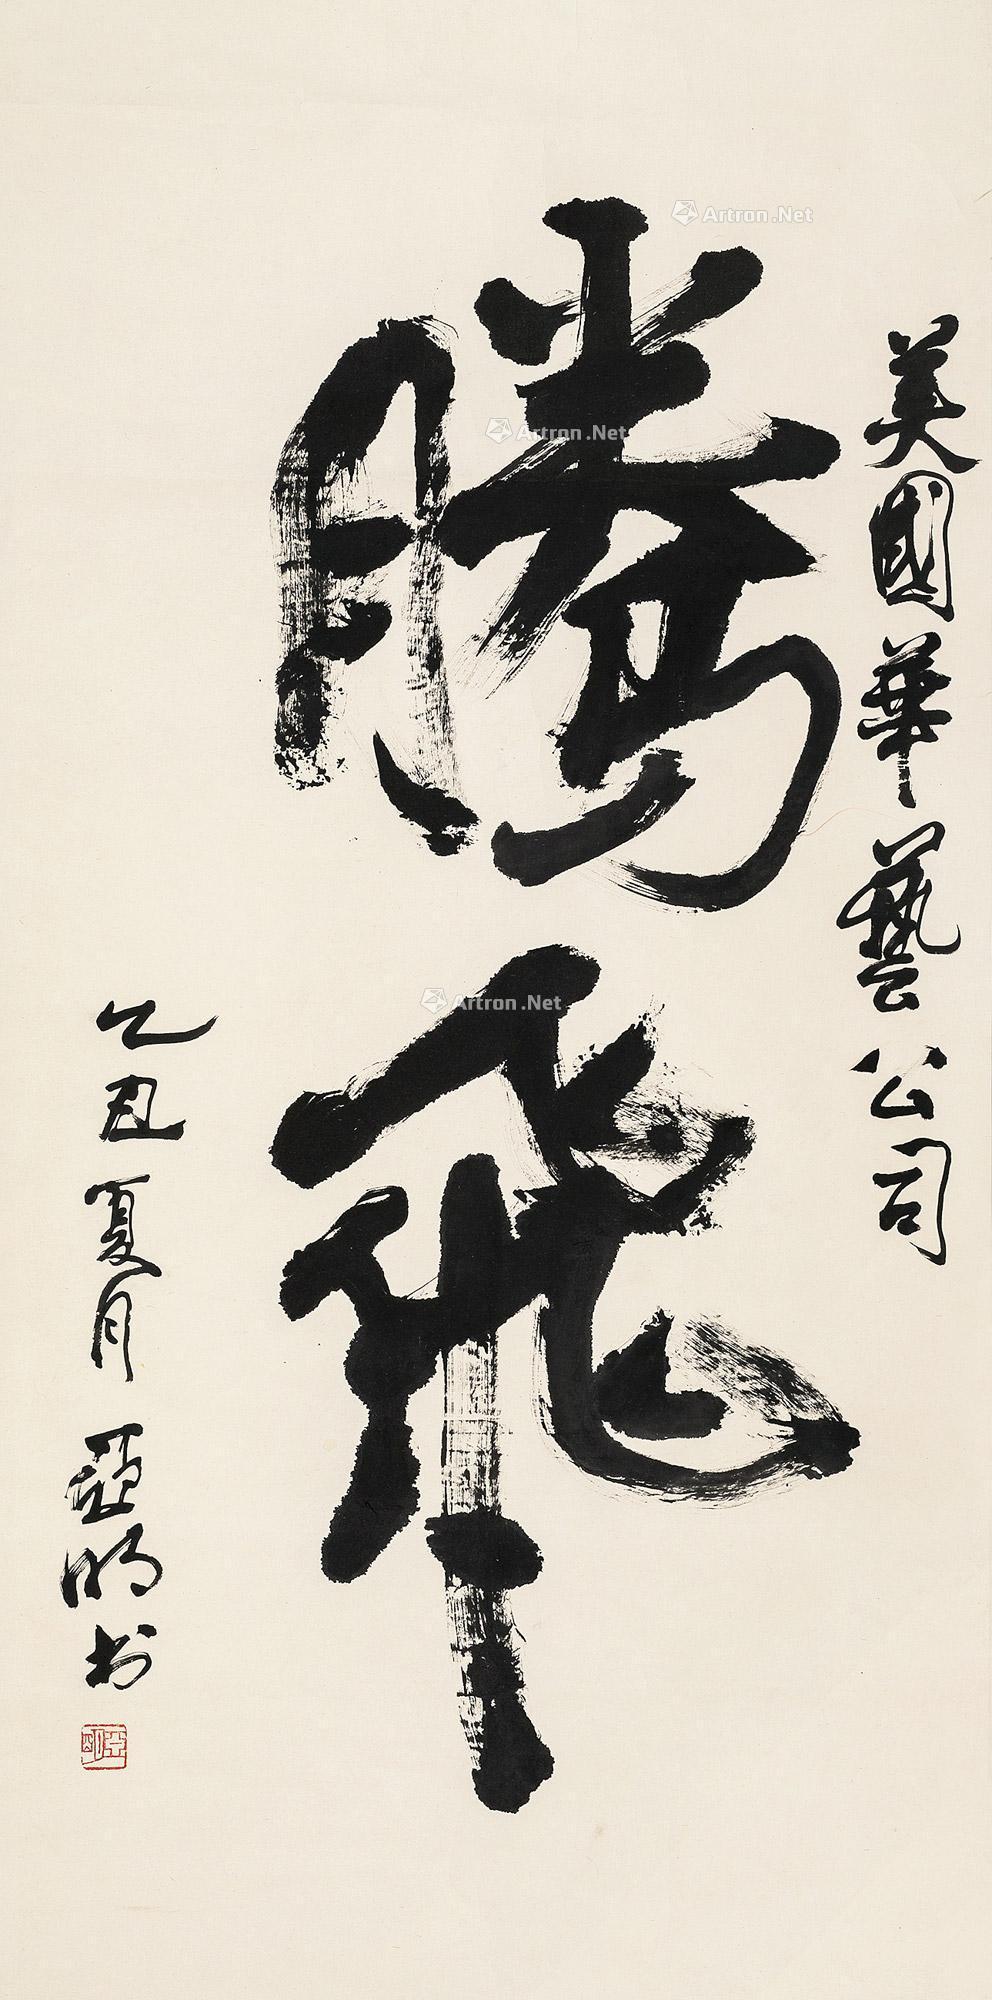 美國華藝公司
騰飛
乙丑夏月
亞明书
亞明
Artron.Net
Artron.Net
Artron.Net